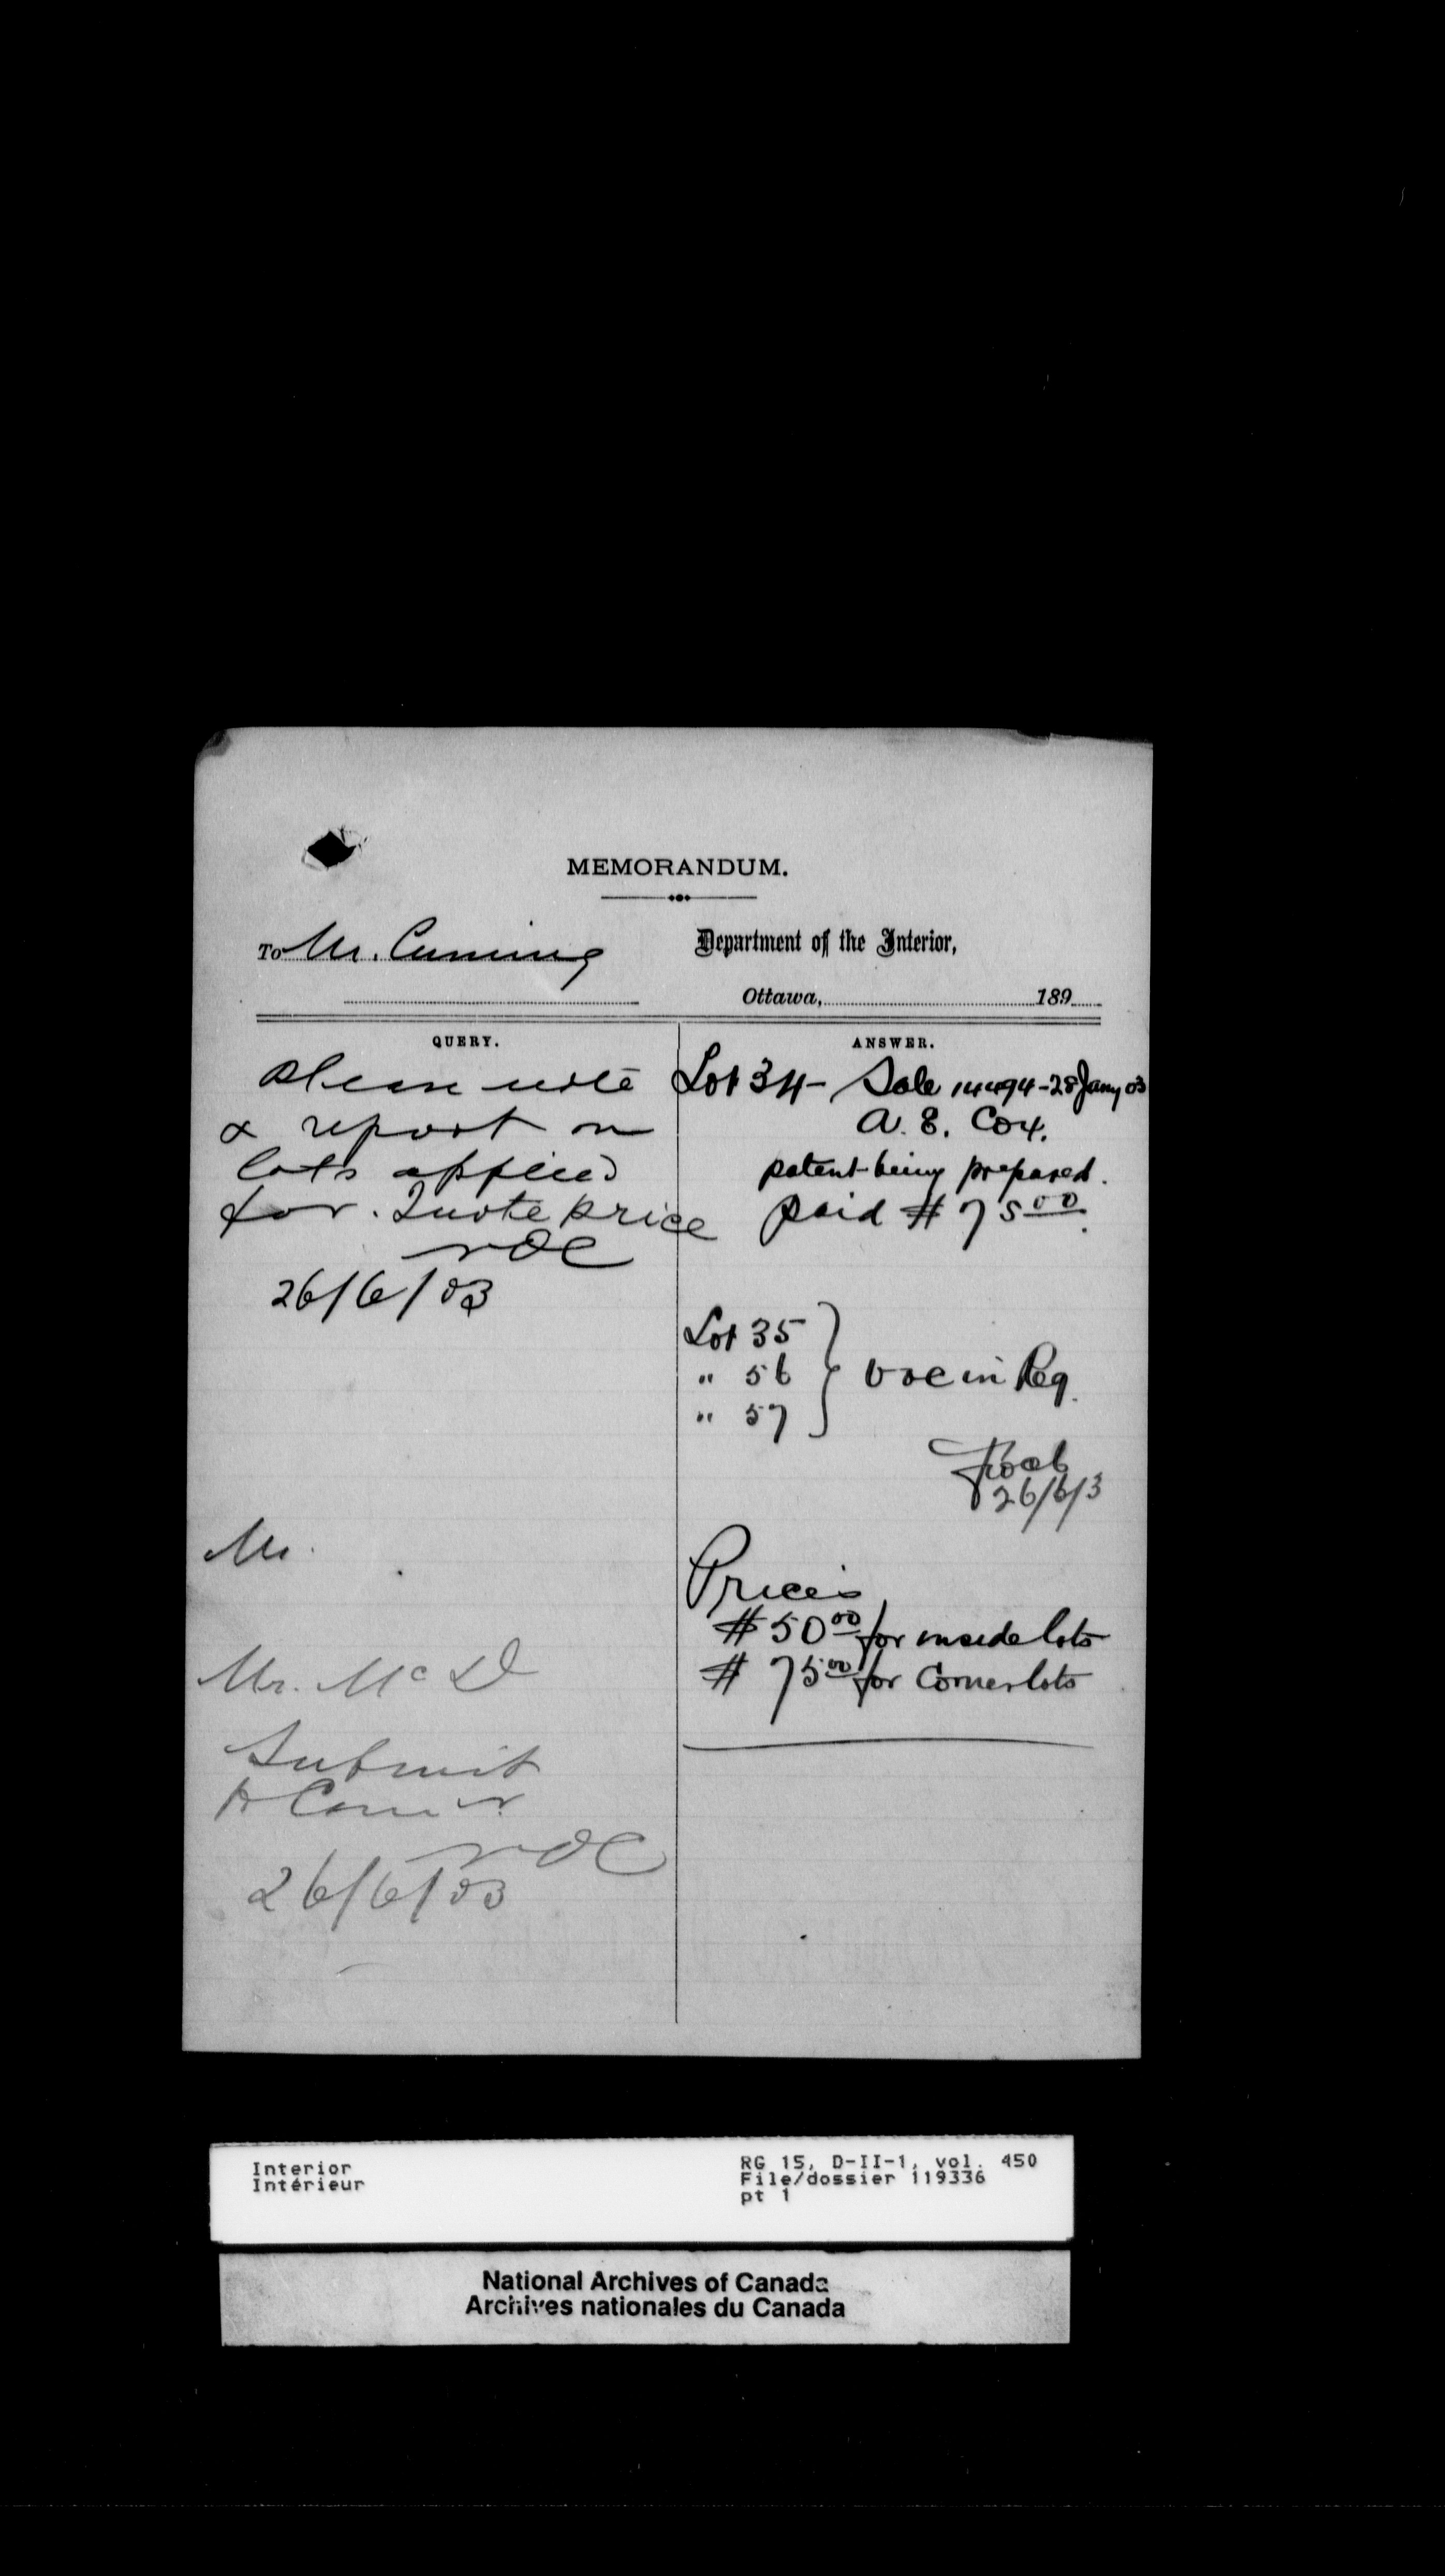 MEMORANDUM.
To Mr. Cuming
Department of the Interior,
Ottawa, 189
QUERY.
Please note
& report on
lots applied
for. Quote price
NOC
26/6/03
Mr.
Mr. McD
Submit
to Comr
NOC
26/6/03
ANSWER.
Lot 34 - Sale 14494 - 28 Jany 03
A. E. Cox.
patent being prepared.
paid $75 00
Lot 35
" 56
" 57
vac in Reg.
26/6/3
Prices
$50 00 for inside lots
$75 00 for Corner lots
Interior
Intérieur
RG 15, D-II-1, vol. 450
File/dossier 119336
pt 1
National Archives of Canada
Archives nationales du Canada